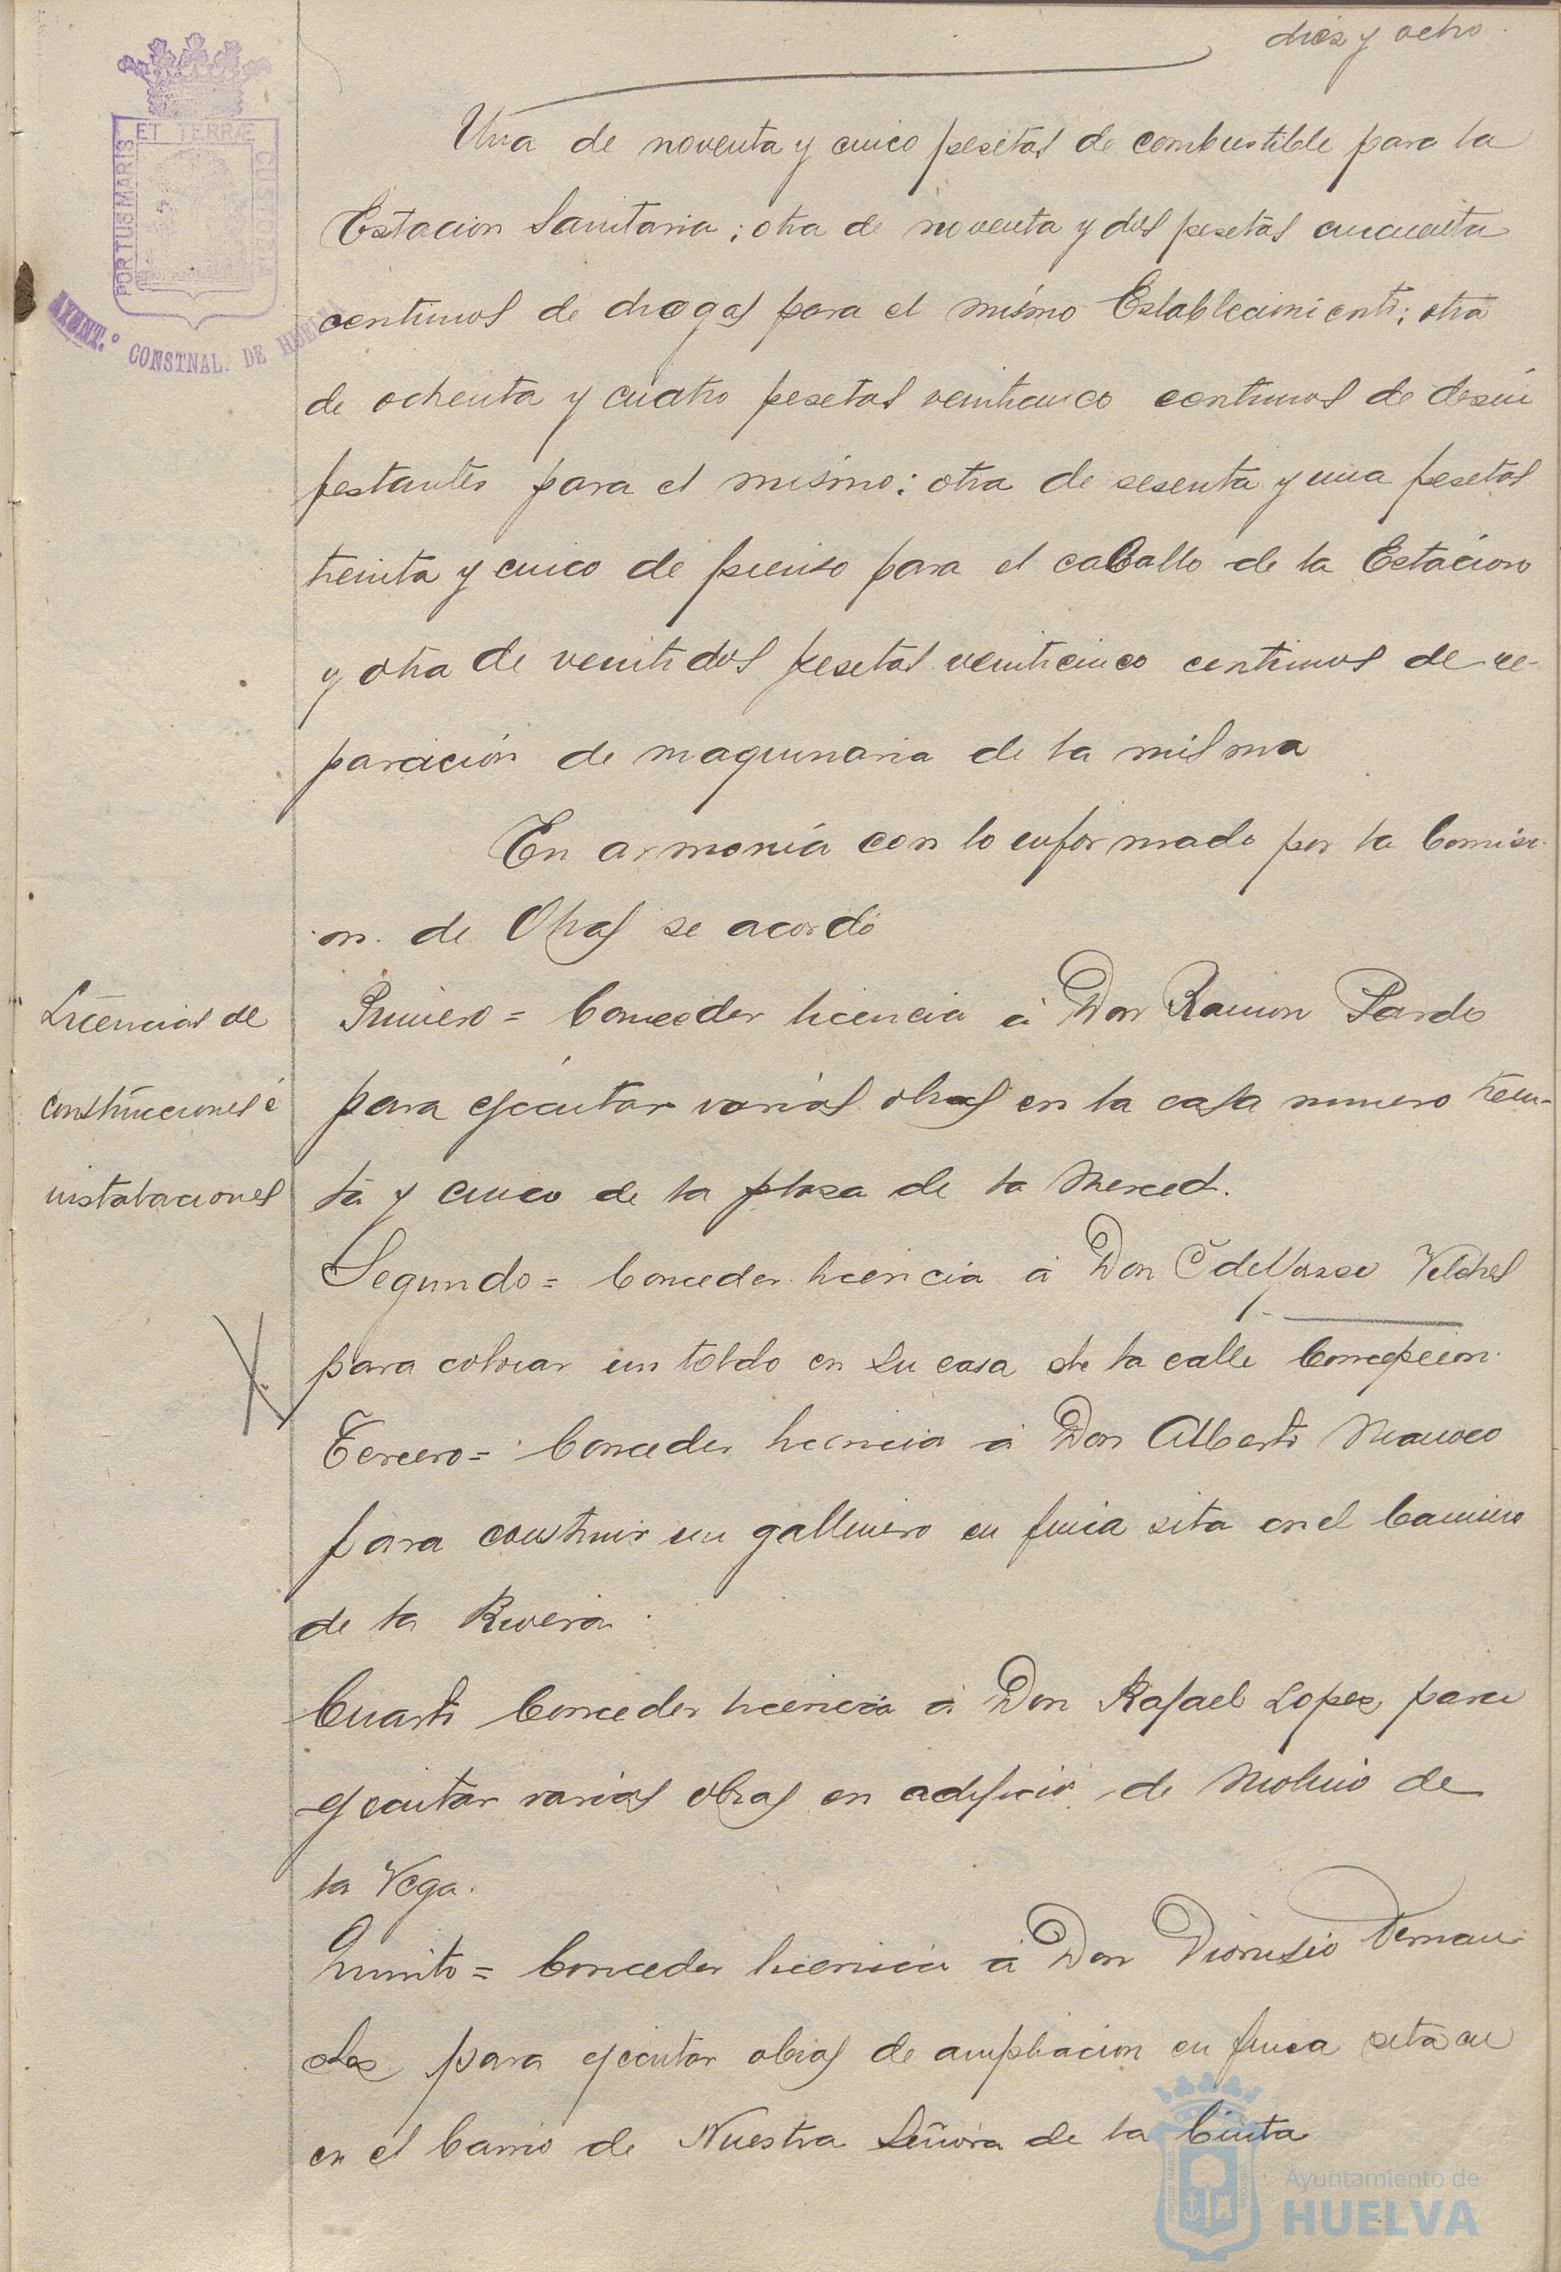 diéz y ocho.
ET TERRÆ
PORTUS MARIS
CUSTODIA
AYUNT.º CONSTNAL. DE HUELVA
Una de noventa y cinco pesetas de combustible para la
Estacion Sanitaria; otra de noventa y dos pesetas cincuenta
centimos de drogas para el mismo Establecimiento; otra
de ochenta y cuatro pesetas veinticinco centimos de desin
fectantes para el mismo; otra de sesenta y una pesetas
treinta y cinco de pienso para el caballo de la Estación
y otra de veintidos pesetas veinticinco centimos de re-
paración de maquinaria de la misma
En armonía con lo informado por la Comisi-
on de Obras se acordó
Licencias de
construcciones é
instalaciones
Primero = Conceder licencia á Don Ramon Pardo
para ejecutar varias obras en la casa numero trein-
ta y cinco de la plasa de la Merced.
Segundo = Conceder licencia á Don Ildefonso Vilches
para colocar un toldo en su casa de la calle Concepcion.
Tercero = Conceder licencia á Don Alberto
para construir un gallinero en finca sita en el Camino
de la Rivera.
Cuarto Conceder licencia á Don Rafael Lopez para
ejecutar varias obras en edificio de Molino de
la Vega.
Quinto = Conceder licencia á Don Dionisio Fernan
dez para ejecutar obras de ampliacion en finca sita en
en el barrio de Nuestra Señora de la Cinta
Ayuntamiento de
HUELVA